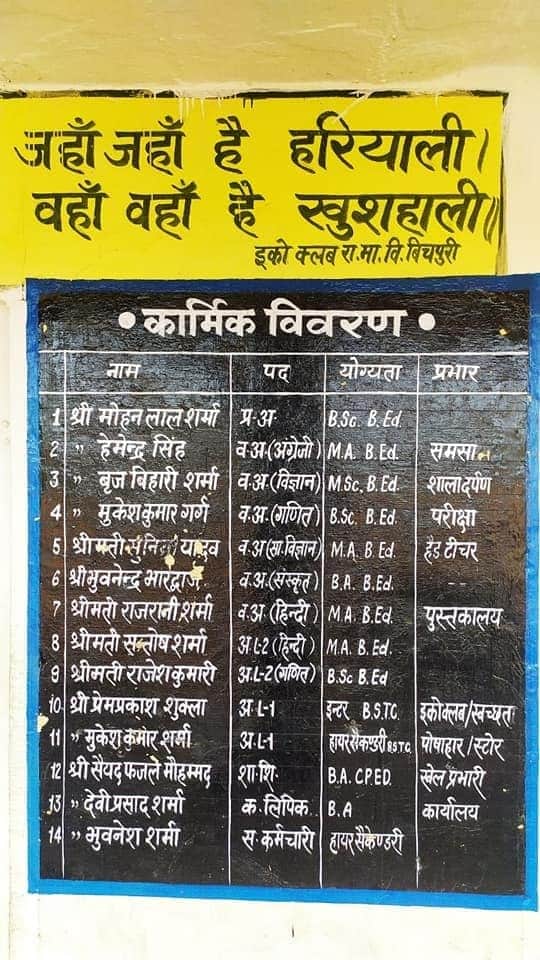 जहाँ जहाँ है हरियाली।
वहाँ वहाँ है खुशहाली॥
इको क्लब रा.मा.वि.बिचपुरी
• कार्मिक विवरण •
नाम पद योग्यता प्रभार
1 श्री मोहन लाल शर्मा प्र-अ B.Sc. B.Ed.
2 " हेमेन्द्र सिंह व.अ.(अंग्रेजी) M.A. B.Ed. समसा
3 " बृज बिहारी शर्मा व.अ.(विज्ञान) M.Sc. B.Ed. शालादर्पण
4 " मुकेश कुमार गर्ग व.अ.(गणित) B.Sc. B.Ed. परीक्षा
5 श्रीमती सुनिता यादव व.अ(सा.विज्ञान) M.A. B.Ed. हैड टीचर
6 श्री भुवनेन्द्र भारद्वाज व.अ.(संस्कृत) B.A. B.Ed. --
7 श्रीमती राजरानी शर्मा व.अ(हिन्दी) M.A. B.Ed. पुस्तकालय
8 श्रीमती सन्तोष शर्मा अ.L-2 (हिन्दी) M.A. B.Ed.
9 श्रीमती राजेश कुमारी अ.L-2 (गणित) B.Sc B.Ed
10 श्री प्रेमप्रकाश शुक्ला अ.L-1 इन्टर B.S.T.C. इकोक्लब/स्वच्छता
11 " मुकेश कुमार शर्मा अ.L-1 हायर सैकण्डरी B.S.T.C. पोषाहार/स्टोर
12 श्री सैयद फजले मौहम्मद शा.शि. B.A. C.P.ED. खेल प्रभारी
13 " देवी प्रसाद शर्मा क.लिपिक.. B.A कार्यालय
14 " भुवनेश शर्मा स.कर्मचारी हायर सैकेण्डरी